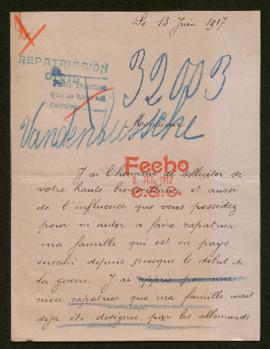 Le 13 Juin 1917
REPATRIACIÓN
32003
Vandenbussche
Monsieur
Fecho
J'ai l'honneur de solliciter de
votre haute bienveillance et aussi
de l'influence que vous possedez
pour m'aider a faire rapatrier
ma famille qui est en pays
envahi depuis presque le debut de
la guerre. J'ai appris
rapatrier que ma famille avait
déja été designée par les allemands